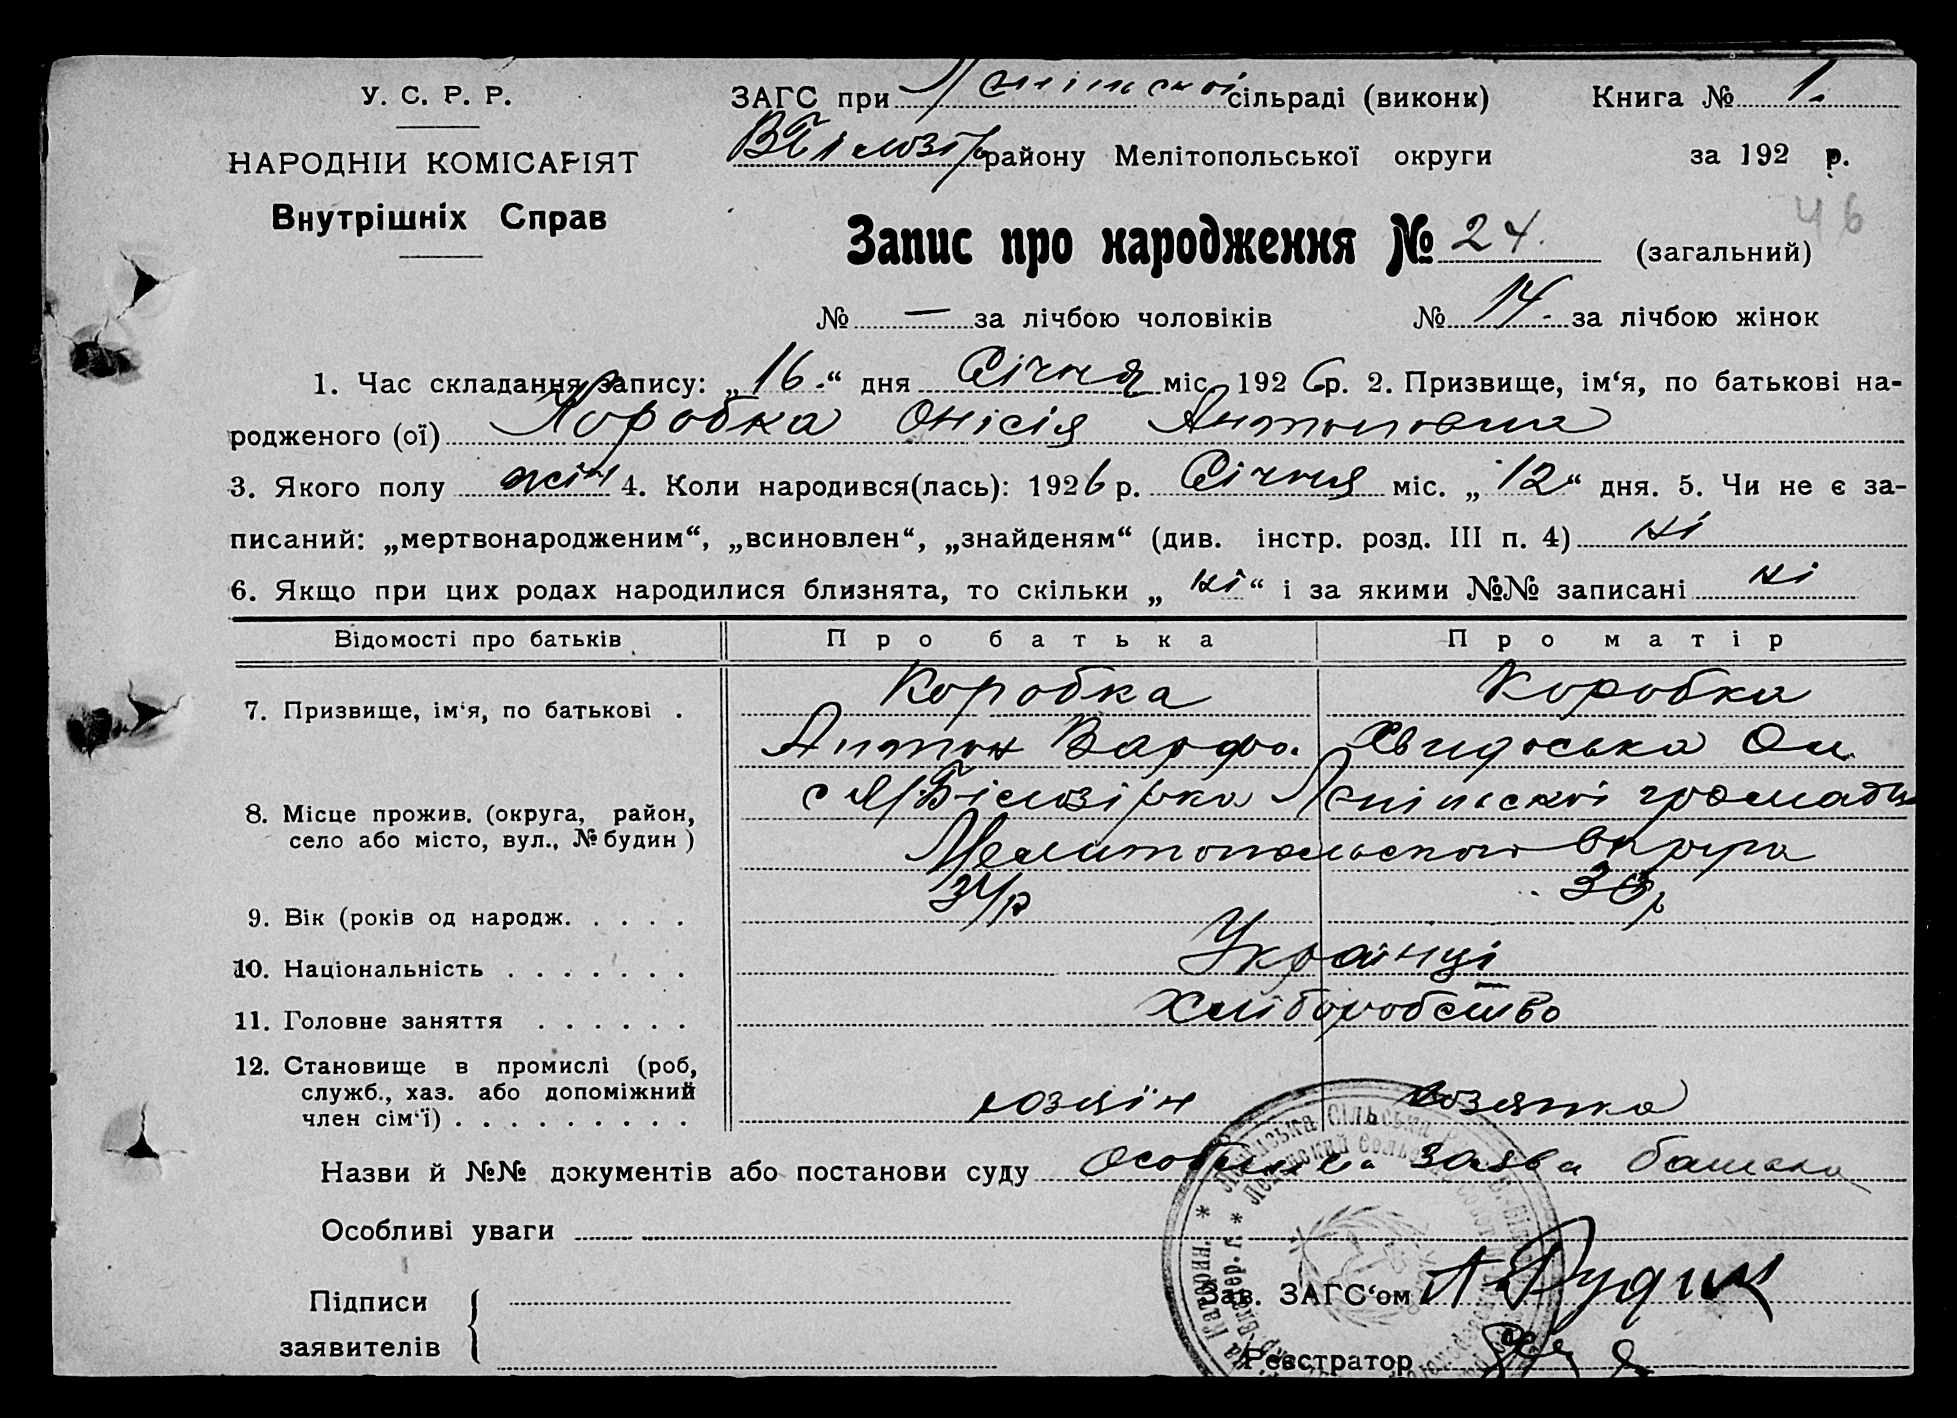 У. С. Р. Р.
НАРОДНІЙ КОМІСАРІЯТ
Внутрішніх Справ
ЗАГС при сільраді (виконк) Книга № 1.
В Білозір району Мелітопольської округи за 192 р.
46
Запис про народження № 24. (загальний)
№ — за лічбою чоловіків № 14. за лічбою жінок
1. Час складання запису: „16.“ дня Січня міс 1926 р. 2. Призвище, ім‘я, по батькові на-
родженого (ої) Коробка Онісія Антоновна
3. Якого полу жін 4. Коли народився(лась): 1926 р. Січня міс. „12“ дня. 5. Чи не є за-
писаний: „мертвонародженим“, „всиновлен“, „знайденям“ (див. інстр. розд. III п. 4) ні
6. Якщо при цих родах народилися близнята, то скільки „ні“ і за якими №№ записані ні
Відомості про батьків Про батька Про матір
7. Призвище, ім‘я, по батькові . Коробка Коробка
Антон Варфо.
8. Місце прожив. (округа, район, с Білозірка громади
село або місто, вул., № будин ) Мелитопольского Округа
9. Вік (років од народж. . . . . 34 р
10. Національність . . . . . . . Українці
11. Головне заняття . . . . . . Хліборобство
12. Становище в промислі (роб,
служб., хаз. або допоміжний
член сім‘ї) . . . . . . . . . хозяїн хозяйка
Назви й №№ документів або постанови суду Особиста заява батька
Особливі уваги
Підписи
заявителів
Зав. ЗАГС‘ом
Реєстратор